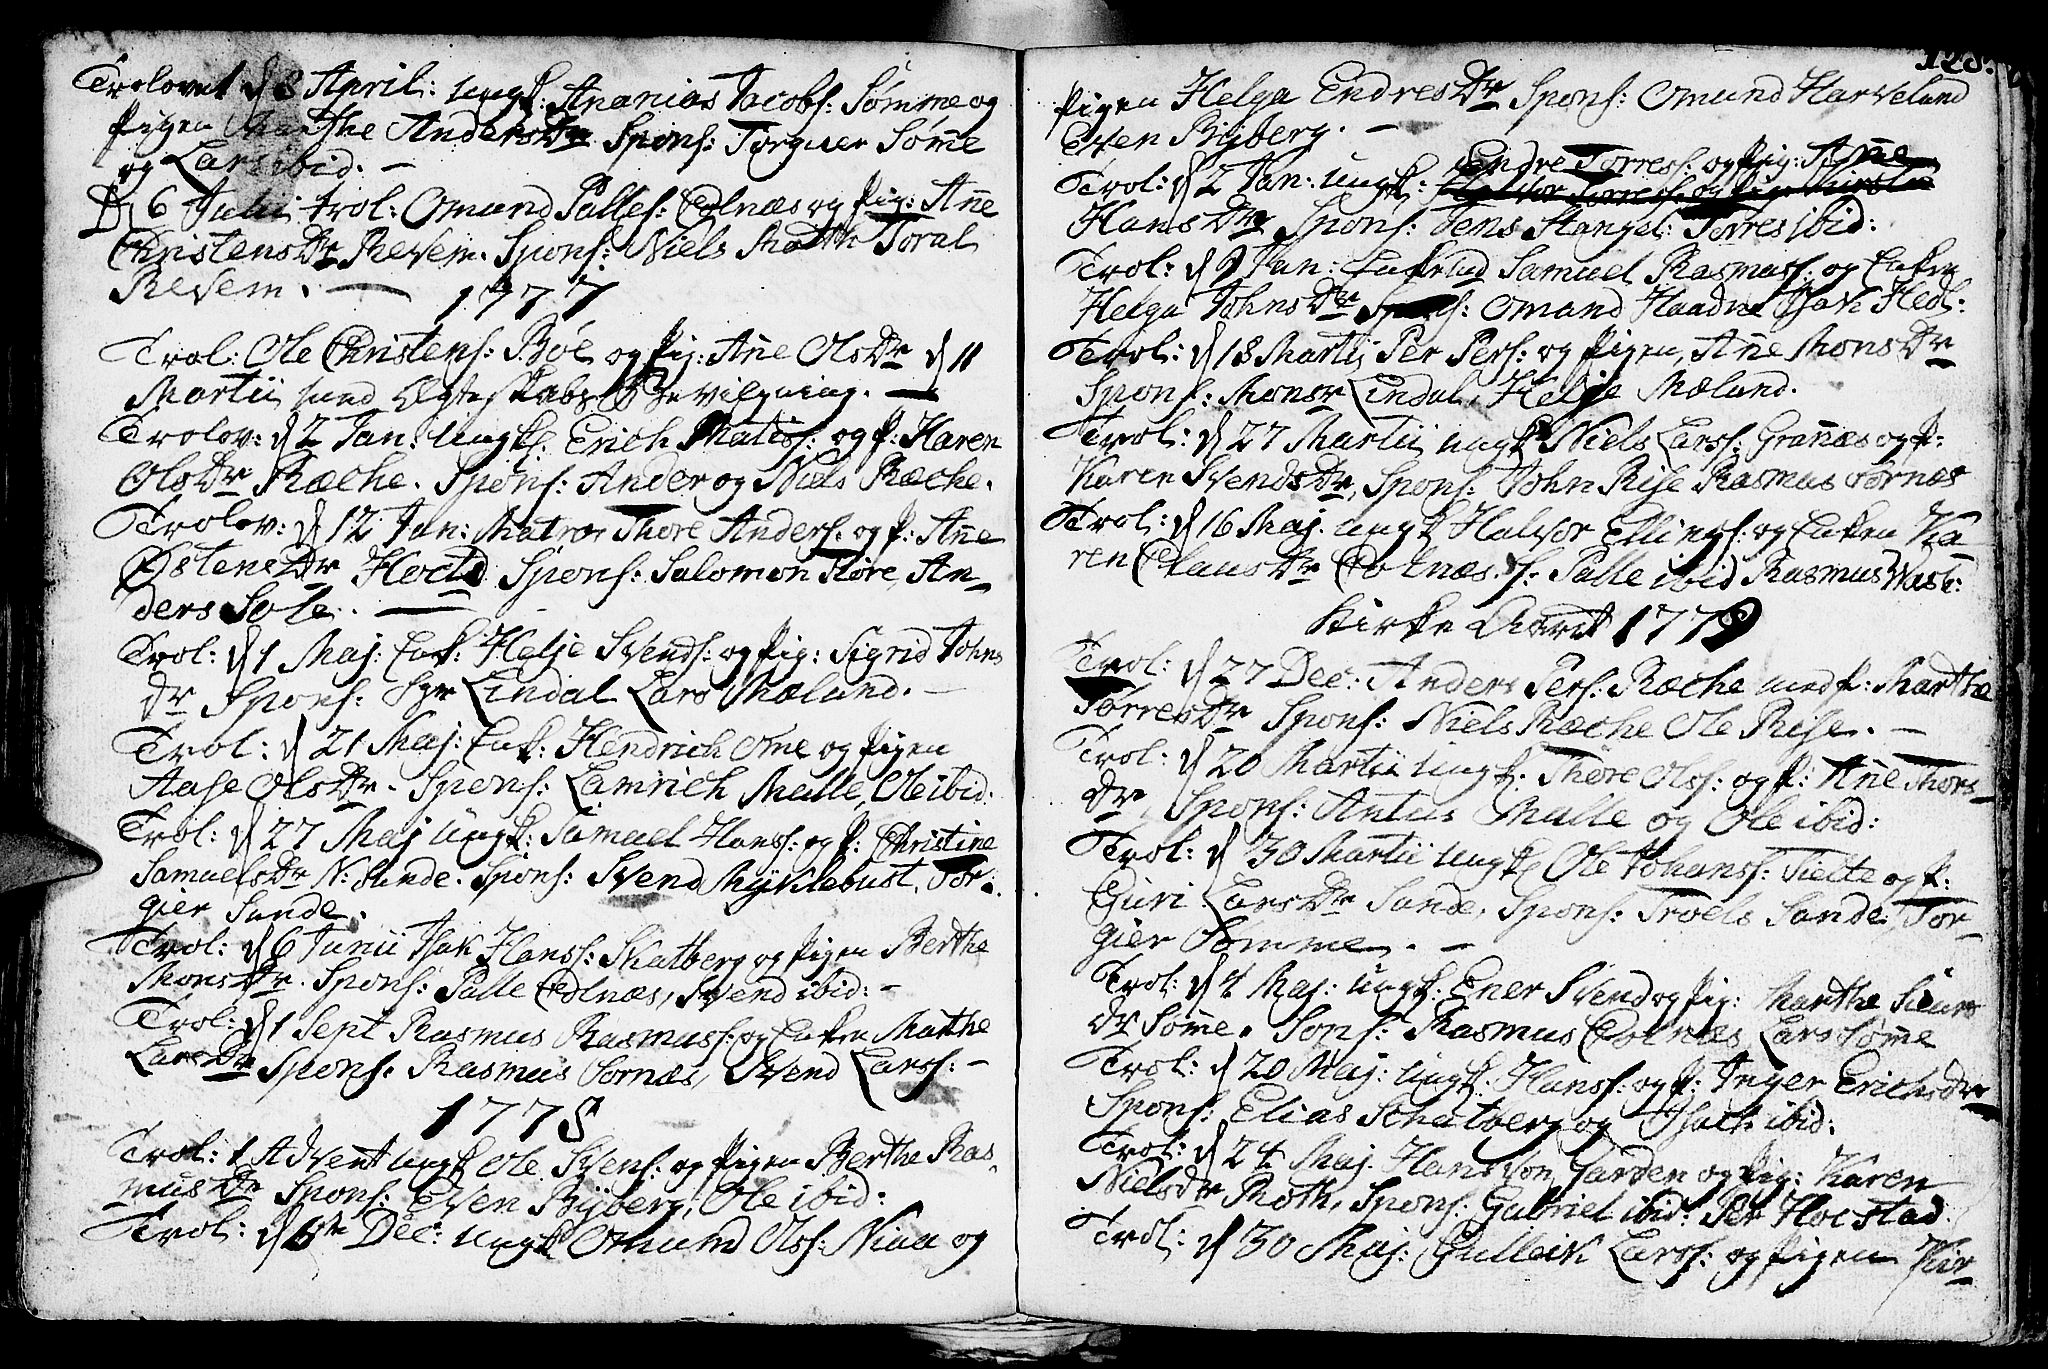 Trolovet d 8 April: ungk: Ananias Jacobs: Sømme og
Pigen Marthe AndersDr Spons: Torgier Søme
og Lars ibid. -
D 6 Julii trol: Omund Palles: Golnæs og Pig: Ane
ChristensDr Revem. Spons: Niels Toral
Revem. -
1777
Trol: Ole Christens: Bøe og Pig: Ane OlsDr d 11
Martii med Ægteskabs Bevilgning. -
Trolov: d 2 Jan: ungk: Erich Matiss: og P: Karen
OlsDr Ræche. Spons: Ander og Niels Ræche.
Trolov: d 12 Jan: Matros Thore Anders: og P: Ane
ØstensDr Hocta Spons: Salomon Tiøre, An-
ders Sole. -
Trol: d 1 Maj: Enk: Helje Svends: og Pig: Sigrid Johns
Dr Spons: Sgr Lindal Lars Mæland. -
Trol: d 21 Maj: Enk: Hendrich Ome og Pigen
Aase OlsDr - Spons: Lamrich Malle, Ole ibid:
Trol: d 27 Maj ungk: Samuel Hans: og P: Christine
SamuelsDr N: Sunde. Spons: Svend Myklebust, Tor-
gier Sunde.
Trol: d 6 Junii Isak Hanss: Skatberg og Pigen Berthe
MonsDr. Spons: Palle Golnæs, Svend ibid: -
Trol: d 1 Sept Rasmus Rasmuss: og Enken Mathe
LarsDr Spons: Rasmus Sornæs, Svend Larss: -
1778
Trol: 1 Advent ungk Ole Svens: og Pigen Berthe Ras-
musDr Spons: Even Byberg, Ole ibid:
Trol: d Dec: ungk Omund Olss: Niaa og
128.
Pigen Helga EndresDr Spons: Omund Harveland
Even Byberg. -
Endre Torress: og Pig: Ane
Trol: d 2 Jan: ungk: Torress: og Pig: Kirstie
HansDr Spons: Jens Stangel: Torres ibid:
Trol: d 9 Jan: Enkemd Samuel Rasmuss: og Enken
Helga JohnsDr Spons: Omand Haadne Isak Hedl:
Trol: d 18 Martii Per Pers: og Pigen, Ane MonsDr
Spons: Monsr Lindal, Helje Mæland.
Trol: d 27 Martii ungk Niels Larss: Granæs og P:
Karen SvendsDr, Spons: John Rise Rasmus Sornæs
Trol: d 16 Maj. ungk Halvor Ellings: og Enken Ka-
ren ClausDr Golnæs. S: Palle ibid Rasmus Vasb:
Kirke Aaret 1779
Trol: d 27 Dec: Anders Pers: Ræche med P: Marthe
TorresDr Spons: Niels Ræche Ole Rise. -
Trol: d 20 Martii ungk: Thore Olss: og P: Ane Thors-
Dr, Spons: Antus Malle og Ole ibid:
Trol: d 30 Martii ungk Ole Johanss: Tielte og P:
Guri LarsDr Sande, Spons: Troels Sande, Tor-
gier Sømme. -
Trol: d 4 Maj: ungk: Ener Svend og Pig: Marthe Siurs
Dr Søme. Sons: Rasmus Golnæs Lars Søme
Trol: d 20 Maj: ungk: Hanss: og P: Inger ErichsDr
Spons: Elias Schatberg og Isach ibid:
Trol: d 24 Maj. Hans von Garden og Pig: Karen
NielsDr Roth, Spons: Gabriel ibid: Per Hocstad.
Trol: d 30 Maj: Gulleik Larss: og Pigen Kir-